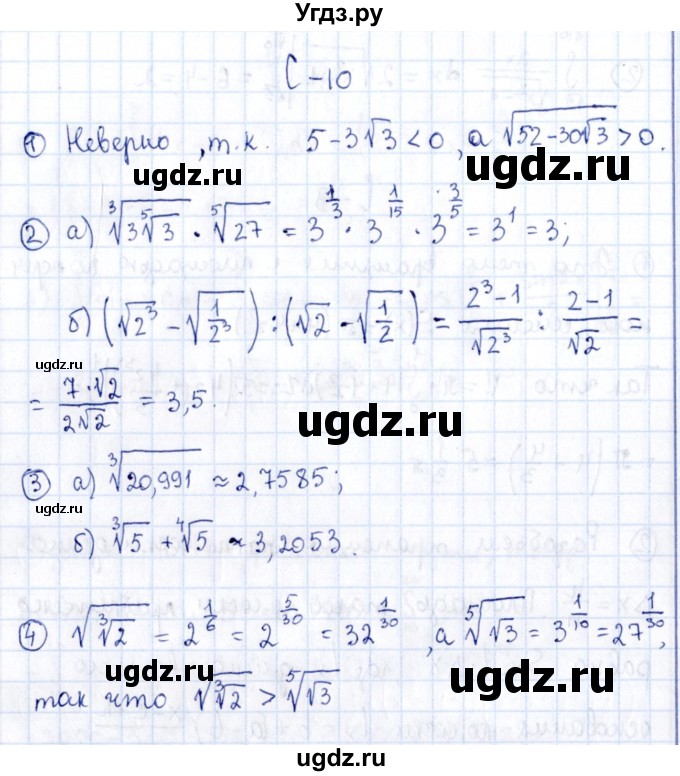 Угдз.ру
С-10
① Неверно, т.к. 5-3√3 < 0, а √(52-30√3) > 0.
ugdz.ru ugdz.ru
② а) ∛(3⁵√3) · ⁵√27 = 3^(1/3) · 3^(1/15) · 3^(3/5) = 3¹ = 3;
б) (√2³ - √(1/2³)) : (√2 - √(1/2)) = (2³-1)/√2³ : (2-1)/√2 =
ugdz.ru
= 7·√2/2√2 = 3,5.
ugdz.ru ugdz.ru
③ а) ∛20,991 ≈ 2,7585;
ugdz.ru
б) ∛5 + ∜5 ≈ 3,2053.
ugdz.ru
④ √(∛2) = 2^(1/6) = 2^(5/30) = 32^(1/30), а ⁵√(√3) = 3^(1/10) = 27^(1/30),
ugdz.ru ugdz.ru
так что √(∛2) > ⁵√(√3)
ugdz.ru